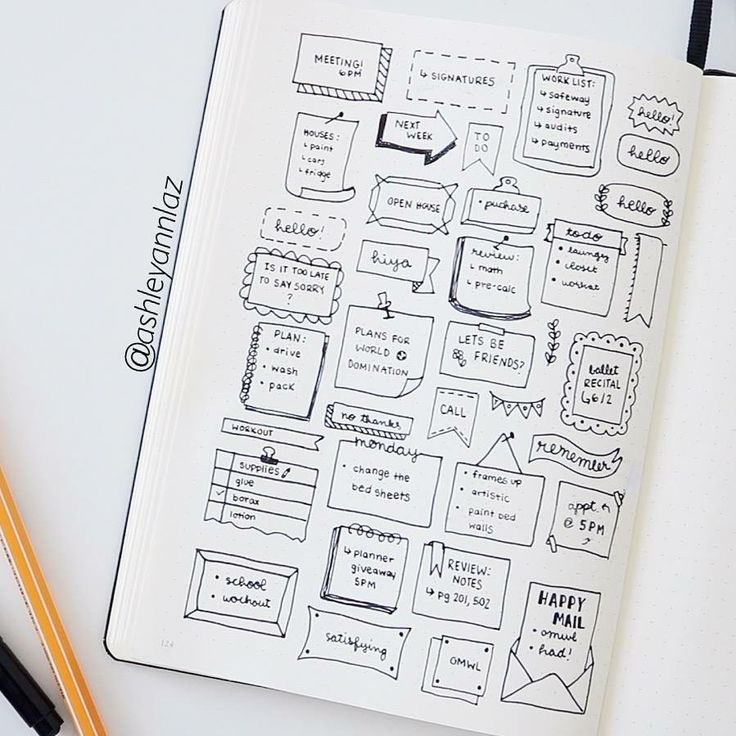 MEETING!
6PM
↳ SIGNATURES
WORK LIST:
↳ safeway
↳ signature
↳ audits
↳ payments
hello!
HOUSES:
↳ paint
↳ cars
↳ fridge
NEXT
WEEK
TO
DO
hello
OPEN HOUSE
• puchase
hello
hello!
hiya
review:
↳ math
↳ pre-calc
todo
• laungry
• closet
• workout
IS IT TOO LATE
TO SAY SORRY
?
PLAN:
• drive
• wash
• pack
PLANS FOR
WORLD
DOMINATION
LETS BE
FRIENDS?
ballet
RECITAL
↳ 6/2
no thanks
CALL
WORKOUT
monday
• change the
bed sheets
remember
supplies
glue
✓ borax
lotion
• frames up
• artistic
• paint bed
walls
appt.
@ 5 PM
↳ planner
giveaway
5PM
REVIEW:
NOTES
↳ pg 201, 502
• school
• workout
HAPPY
MAIL
• omwl
• had!
satisfying
OMWL
124
@ashleyannlaz